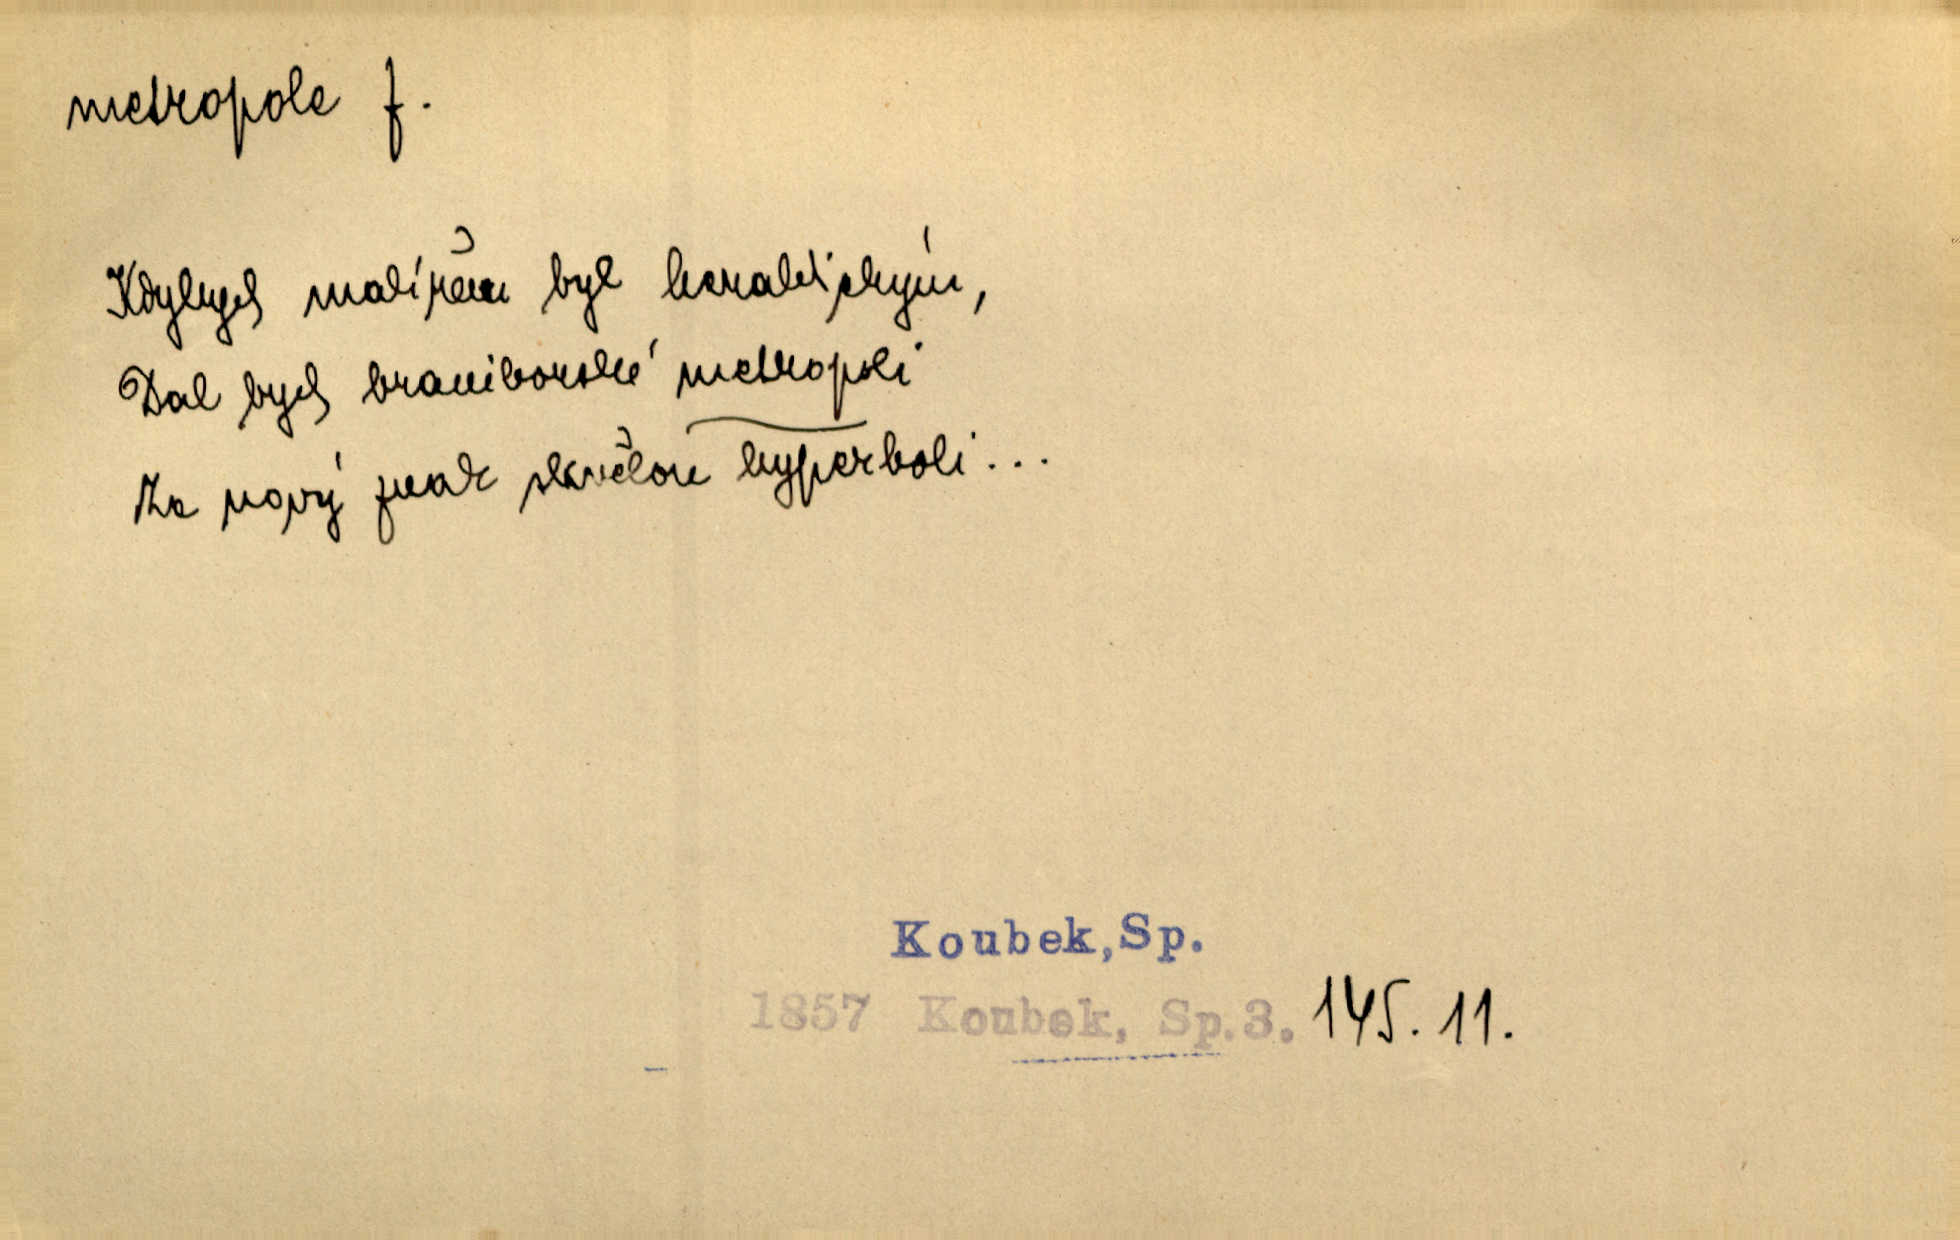 metropole f.
Kdybych malířem byl heraldickým,
Dal bych braniborské metropoli
Za nový znak skvělou hyperboli...
Koubek,Sp.
1857 Koubek, Sp.3. 145. 11.